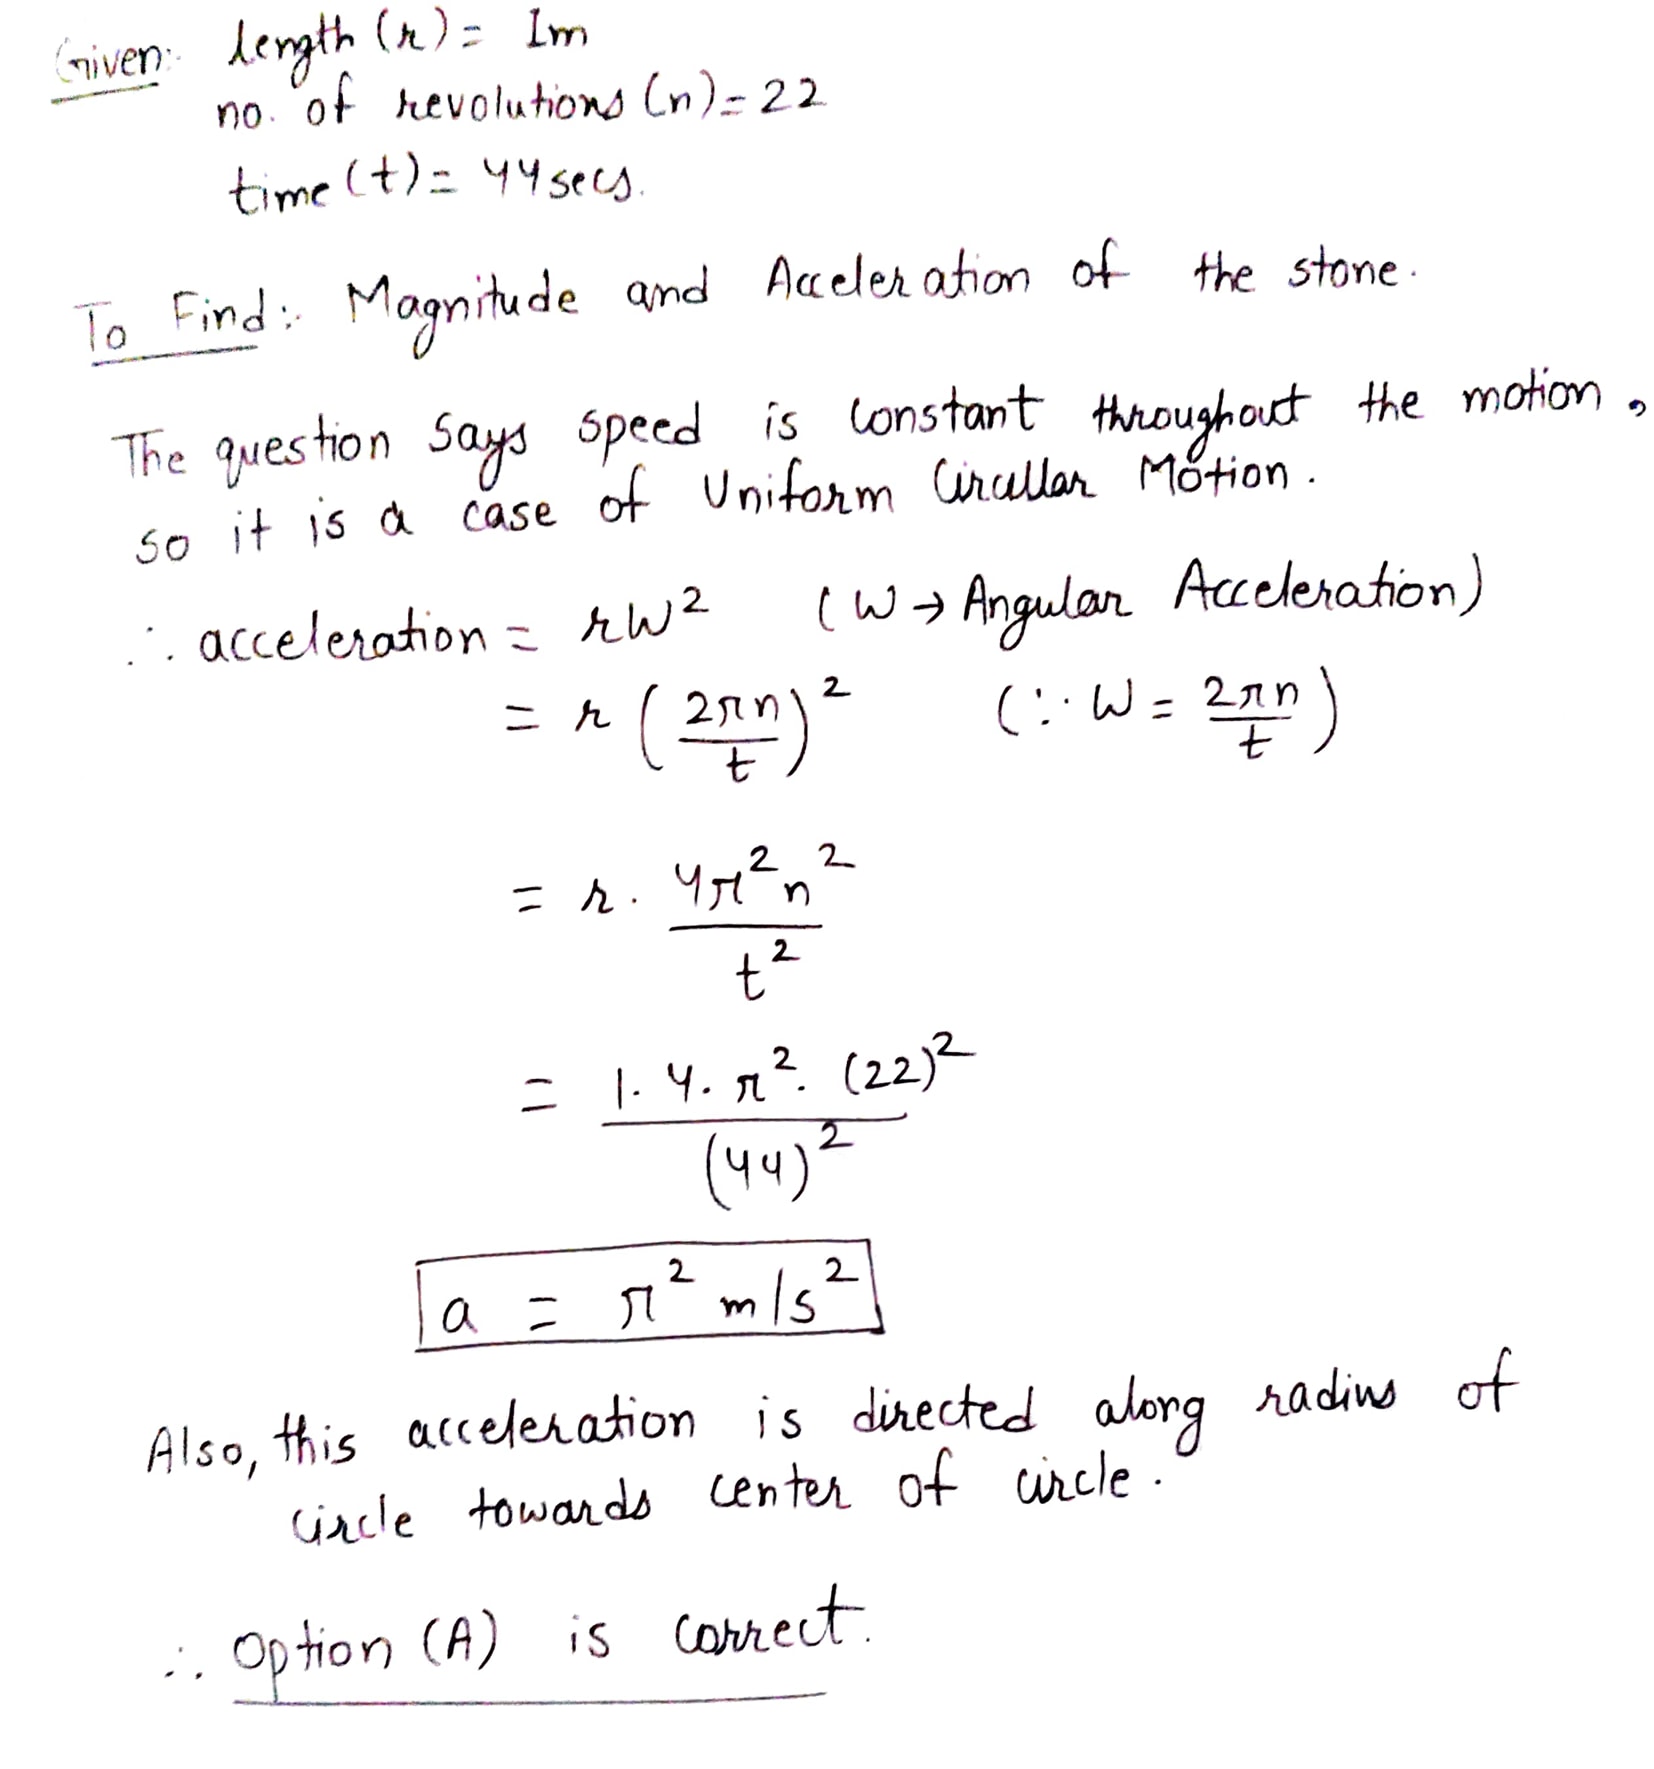 Given: length (r) = 1m
no. of revolutions (n) = 22
time (t) = 44 secs.
To Find: Magnitude and Acceleration of the stone.
The question says speed is constant throughout the motion,
so it is a case of Uniform Circullar Motion.
∴ acceleration = rW² (W → Angular Acceleration)
= r (2πn/t)² (∵ W = 2πn/t)
= r. 4π²n²/t²
= 1. 4. π². (22)²/(44)²
a = π² m/s²
Also, this acceleration is directed along radius of
circle towards center of circle.
∴ Option (A) is correct.